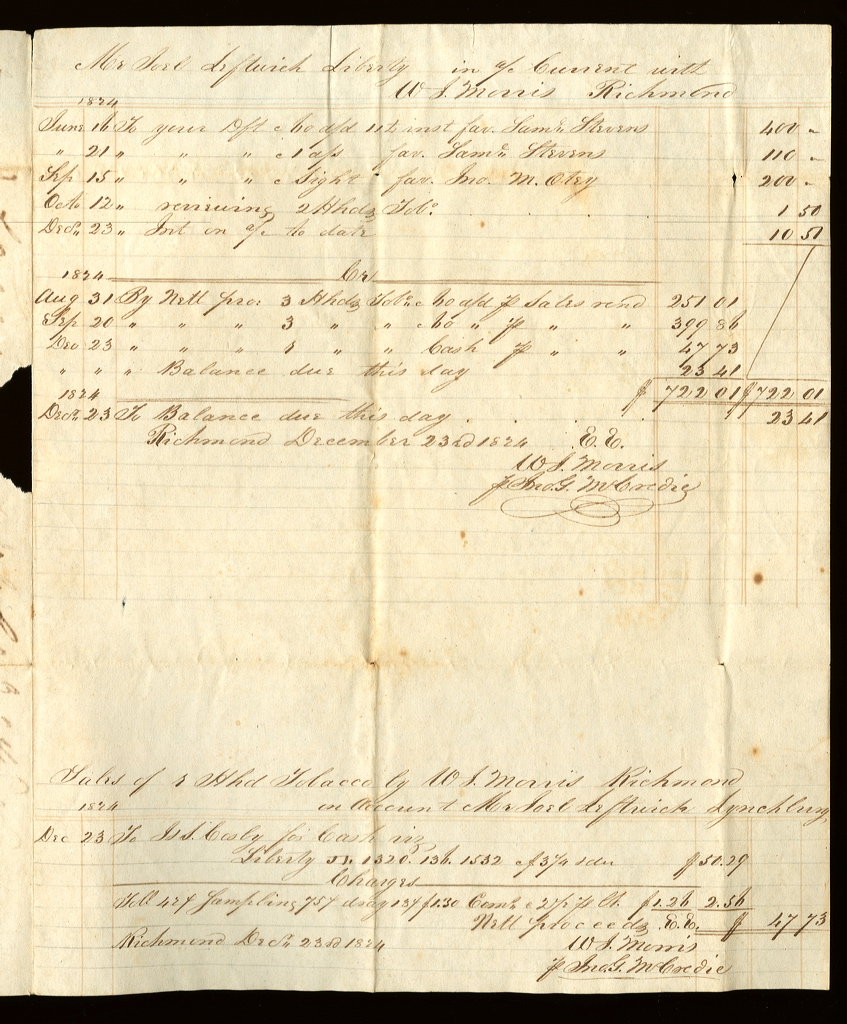 Mr Joel Leftwich Liberty in a/c Current with
W S. Morris Richmond
1824
June 16 To your Dft c 60 d/d 11th inst fav. Saml. Stevens 400 "
" 21 " " " c 1 d/s fav. Saml. Stevens 110 "
Sep 15 " " " c Sight fav. Jno. M. Otey 200 "
Octo 12 " reviewing 2 Hhds Tobo. 1 50
Decr. 23 " Int on a/c to date 10 51
1824 Cr
Aug 31 By Nett pro: 3 Hhds Tobo. c 60 d/d p Sales rend 251 01
Sep 20 " " " 3 " " c 60 " p " " 399 86
Dec 23 " " " 1 " " Cash p " " 47 73
" " " Balance due this day 23 41
$ 722 01 $722 01
1824
Decr. 23 To Balance due this day 23 41
Richmond December 23rd 1824 E.E.
W S. Morris
p Jno. G. McCredie
Sales of 1 Hhd Tobacco by W S. Morris Richmond
1824 on Account Mr Joel Leftwich Lynchburg
Dec 23 To Cosby for Cash viz
Liberty 1320. 136. 1532 c 3 3/4 $50.29
Charges
Toll 42¢ Sampling 75¢ dray $1.30 Comn. c 2½ p Ct. $1.26 2.56
Nett proceeds E.E. $ 47 73
Richmond Decr. 23rd 1824 W S. Morris
p Jno. G. McCredie